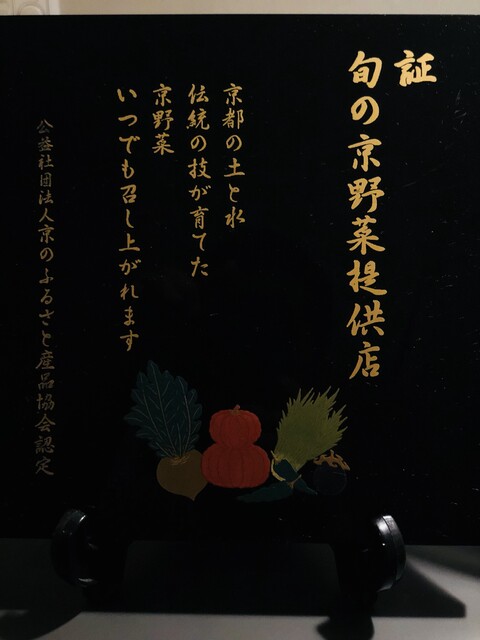 証
旬の京野菜提供店
京都の土と水
伝統の技が育てた
京野菜
いつでも召し上がれます
公益社団法人京のふるさと産品協会認定